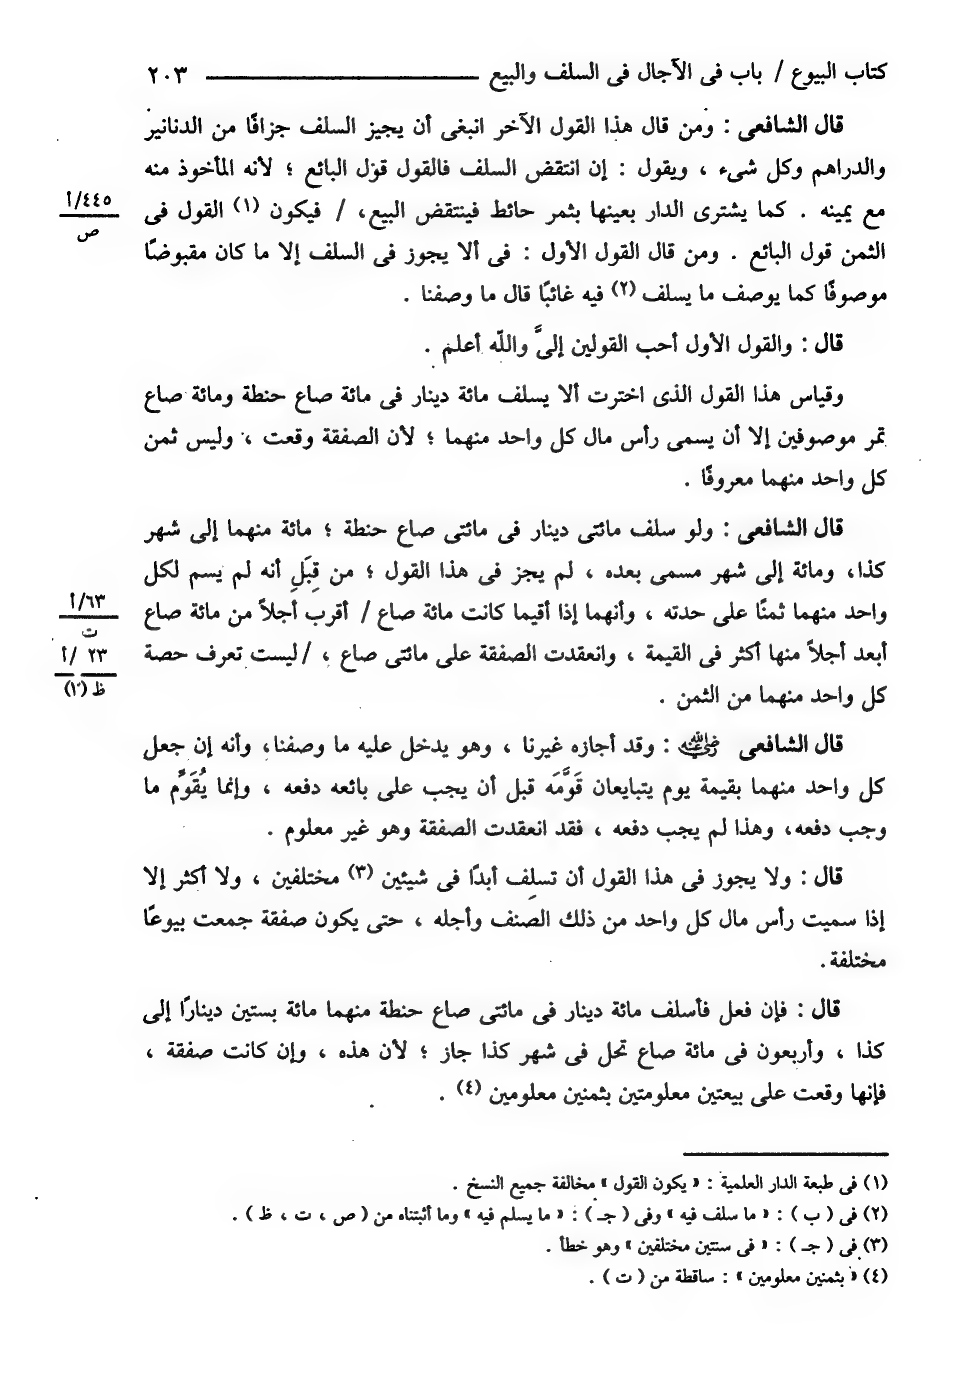 كتاب البيوع / باب فى الآجال فى السلف والبيع ٢٠٣
قال الشافعى : ومن قال هذا القول الآخر انبغى أن يجيز السلف جزافًا من الدنانير
والدراهم وكل شىء ، ويقول : إن انتقض السلف فالقول قول البائع ؛ لأنه المأخوذ منه
مع يمينه . كما يشترى الدار بعينها بثمر حائط فينتقض البيع، / فيكون (١) القول فى
٤٤٥/أ
ص
الثمن قول البائع . ومن قال القول الأول : فى ألا يجوز فى السلف إلا ما كان مقبوضًا
موصوفًا كما يوصف ما يسلف (٢) فيه غائبًا قال ما وصفنا .
قال : والقول الأول أحب القولين إلىَّ والله أعلم .
وقياس هذا القول الذى اخترت ألا يسلف مائة دينار فى مائة صاع حنطة ومائة صاع
تمر موصوفين إلا أن يسمى رأس مال كل واحد منهما ؛ لأن الصفقة وقعت ، وليس ثمن
كل واحد منهما معروفًا .
قال الشافعى : ولو سلف مائتى دينار فى مائتى صاع حنطة ؛ مائة منهما إلى شهر
كذا، ومائة إلى شهر مسمى بعده ، لم يجز فى هذا القول ؛ من قِبَلِ أنه لم يسم لكل
واحد منهما ثمنًا على حدته ، وأنهما إذا أقيما كانت مائة صاع / أقرب أجلاً من مائة صاع
٦٣/أ
ت
أبعد أجلاً منها أكثر فى القيمة ، وانعقدت الصفقة على مائتى صاع ، / ليست تعرف حصة
٢٣ /أ
ظ (١)
كل واحد منهما من الثمن .
قال الشافعى رضي الله عنه : وقد أجازه غيرنا ، وهو يدخل عليه ما وصفنا، وأنه إن جعل
كل واحد منهما بقيمة يوم يتبايعان قَوَّمَه قبل أن يجب على بائعه دفعه ، وإنما يُقَوَّم ما
وجب دفعه، وهذا لم يجب دفعه ، فقد انعقدت الصفقة وهو غير معلوم .
قال : ولا يجوز فى هذا القول أن تسلِف أبدًا فى شيئين (٣) مختلفين ، ولا أكثر إلا
إذا سميت رأس مال كل واحد من ذلك الصنف وأجله ، حتى يكون صفقة جمعت بيوعًا
مختلفة .
قال : فإن فعل فأسلف مائة دينار فى مائتى صاع حنطة منهما مائة بستين دينارًا إلى
كذا ، وأربعون فى مائة صاع تحل فى شهر كذا جاز ؛ لأن هذه ، وإن كانت صفقة ،
فإنها وقعت على بيعتين معلومتين بثمنين معلومين (٤) .
(١) فى طبعة الدار العلمية : « يكون القول » مخالفة جميع النسخ .
(٢) فى ( ب ) : « ما سلف فيه » وفى ( جـ ) : « ما يسلم فيه » وما أثبتناه من ( ص ، ت ، ظ ) .
(٣) فى ( جـ ) : « فى سنتين مختلفين » وهو خطأ .
(٤) « بثمنين معلومين » : ساقطة من ( ت ) .